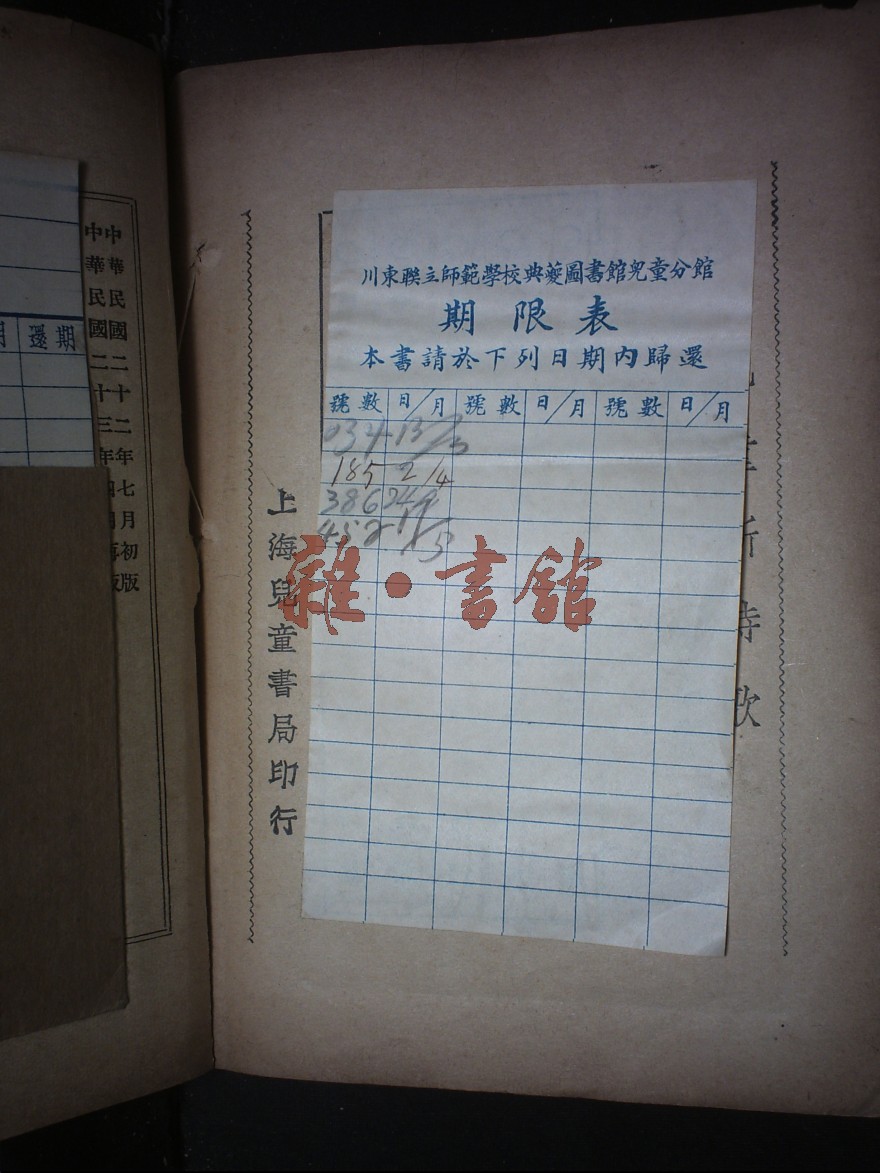 川東聯立師範學校典夔圖書館兒童分館
期限表
本書請於下列日期內歸還
號數 日/月 號數 日/月 號數 日/月
034 13/3
185 2/4
386 24/4
452
雜·書館
新詩歌
上海兒童書局印行
中華民國二十二年七月初版
中華民國二十三年四月再版
還期